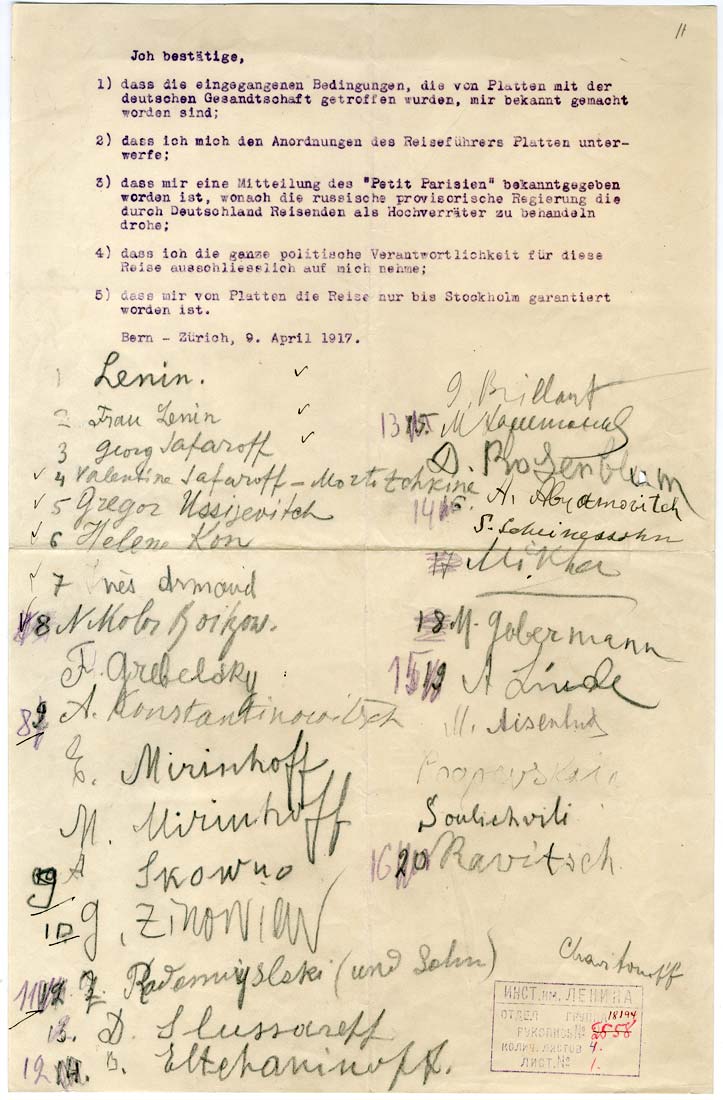 11
Joh bestätige,
1) dass die eingegangenen Bedingungen, die von Platten mit der
deutschen Gesandtschaft getroffen wurden, mir bekannt gemacht
worden sind;
2) dass ich mich den Anordnungen des Reiseführers Platten unter-
werfe;
3) dass mir eine Mitteilung des "Petit Parisien" bekanntgegeben
worden ist, wonach die russische provisorische Regierung die
durch Deutschland Reisenden als Hochverräter zu behandeln
drohe;
4) dass ich die ganze politische Verantwortlichkeit für diese
Reise ausschliesslich auf mich nehme;
5) dass mir von Platten die Reise nur bis Stockholm garantiert
worden ist.
Bern - Zürich, 9. April 1917.
1 Lenin.
2 Frau Lenin
3 Georg Safaroff
4 Valentine Safaroff - Mortotchkine
5 Gregor Ussijevitch
6 Helene Kon
7 Inès Armand
8 N. Boitzow.
F. Grebelsky
9 A. Konstantinowitsch
E. Mirinhoff
M. Mirinhoff
9 A Skowno
10 G. Zinowiew
12 Z. Radomyslski (und Sohn)
13. D. Slussareff
12 14. B. Eltchaninoff.
Brillant
13 15.
D. Rosenblum
14 16. A. Abramovitch
S. Scheinessohn
17
18 M. Gobermann
15 19 A Linde
M. Aisenhud
Pogowskaia
Soulichvili
16 20 Ravitsch
Charitonoff
ИНСТ. ИМ. ЛЕНИНА
ОТДЕЛ ГРУППА 18194
РУКОПИСЬ № 2858
КОЛИЧ. ЛИСТОВ 4.
ЛИСТ. № 1.